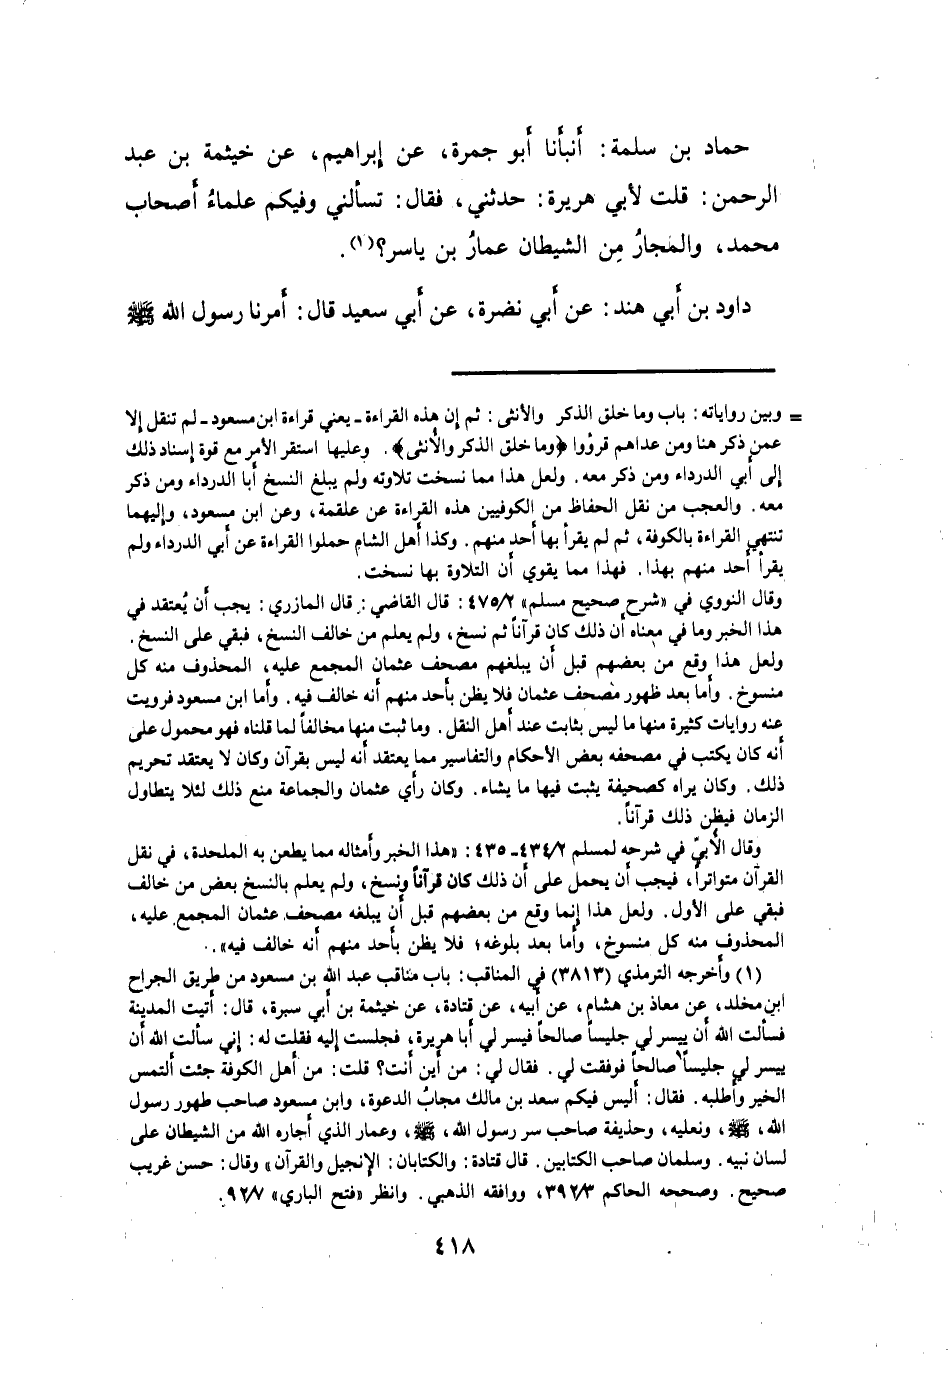 حماد بن سلمة: أنبأنا أبو جمرة، عن إبراهيم، عن خيثمة بن عبد
الرحمن: قلت لأبي هريرة: حدثني، فقال: تسألني وفيكم علماءُ أصحاب
محمد، والمُجارُ مِن الشيطان عمارُ بن ياسر؟(١).
داود بن أبي هند: عن أبي نضرة، عن أبي سعيد قال: أمرنا رسول الله ﷺ
= وبين رواياته: باب وما خلق الذكر والأنثى: ثم إن هذه القراءة ـ يعني قراءة ابن مسعود ـ لم تنقل إلا
عمن ذكر هنا ومن عداهم قرؤوا ﴿وما خلق الذكر والأنثى﴾. وعليها استقر الأمر مع قوة إسناد ذلك
إلى أبي الدرداء ومن ذكر معه. ولعل هذا مما نسخت تلاوته ولم يبلغ النسخ أبا الدرداء ومن ذكر
معه. والعجب من نقل الحفاظ من الكوفيين هذه القراءة عن علقمة، وعن ابن مسعود، وإليهما
تنتهي القراءة بالكوفة، ثم لم يقرأ بها أحد منهم. وكذا أهل الشام حملوا القراءة عن أبي الدرداء ولم
يقرأ أحد منهم بهذا. فهذا مما يقوي أن التلاوة بها نسخت.
وقال النووي في «شرح صحيح مسلم» ٤٧٥/٢: قال القاضي: قال المازري: يجب أن يُعتقد في
هذا الخبر وما في معناه أن ذلك كان قرآناً ثم نسخ، ولم يعلم من خالف النسخ، فبقي على النسخ.
ولعل هذا وقع من بعضهم قبل أن يبلغهم مصحف عثمان المجمع عليه، المحذوف منه كل
منسوخ. وأما بعد ظهور مصحف عثمان فلا يظن بأحد منهم أنه خالف فيه. وأما ابن مسعود فرويت
عنه روايات كثيرة منها ما ليس بثابت عند أهل النقل. وما ثبت منها مخالفاً لما قلناه فهو محمول على
أنه كان يكتب في مصحفه بعض الأحكام والتفاسير مما يعتقد أنه ليس بقرآن وكان لا يعتقد تحريم
ذلك. وكان يراه كصحيفة يثبت فيها ما يشاء. وكان رأي عثمان والجماعة منع ذلك لئلا يتطاول
الزمان فيظن ذلك قرآناً.
وقال الأبيّ في شرحه لمسلم ٤٣٤/٢ـ ٤٣٥: «هذا الخبر وأمثاله مما يطعن به الملحدة، في نقل
القرآن متواتراً، فيجب أن يحمل على أن ذلك كان قرآناً ونسخ، ولم يعلم بالنسخ بعض من خالف
فبقي على الأول. ولعل هذا إنما وقع من بعضهم قبل أن يبلغه مصحف عثمان المجمع عليه،
المحذوف منه كل منسوخ، وأما بعد بلوغه؛ فلا يظن بأحد منهم أنه خالف فيه»..
(١) وأخرجه الترمذي (٣٨١٣) في المناقب: باب مناقب عبد الله بن مسعود من طريق الجراح
ابن مخلد، عن معاذ بن هشام، عن أبيه، عن قتادة، عن خيثمة بن أبي سبرة، قال: أتيت المدينة
فسألت الله أن ييسر لي جليساً صالحاً فيسر لي أبا هريرة، فجلست إليه فقلت له: إني سألت الله أن
ييسر لي جليساً صالحاً فوفقت لي. فقال لي: من أين أنت؟ قلت: من أهل الكوفة جئت ألتمس
الخير وأطلبه. فقال: أليس فيكم سعد بن مالك مجابُ الدعوة، وابن مسعود صاحب طهور رسول
الله، ﷺ، ونعليه، وحذيفة صاحب سر رسول الله، ﷺ، وعمار الذي أجاره الله من الشيطان على
لسان نبيه. وسلمان صاحب الكتابين. قال قتادة: والكتابان: الإنجيل والقرآن» وقال: حسن غريب
صحيح. وصححه الحاكم ٣٩٢/٣، ووافقه الذهبي. وانظر «فتح الباري» ٩٢/٧.
٤١٨